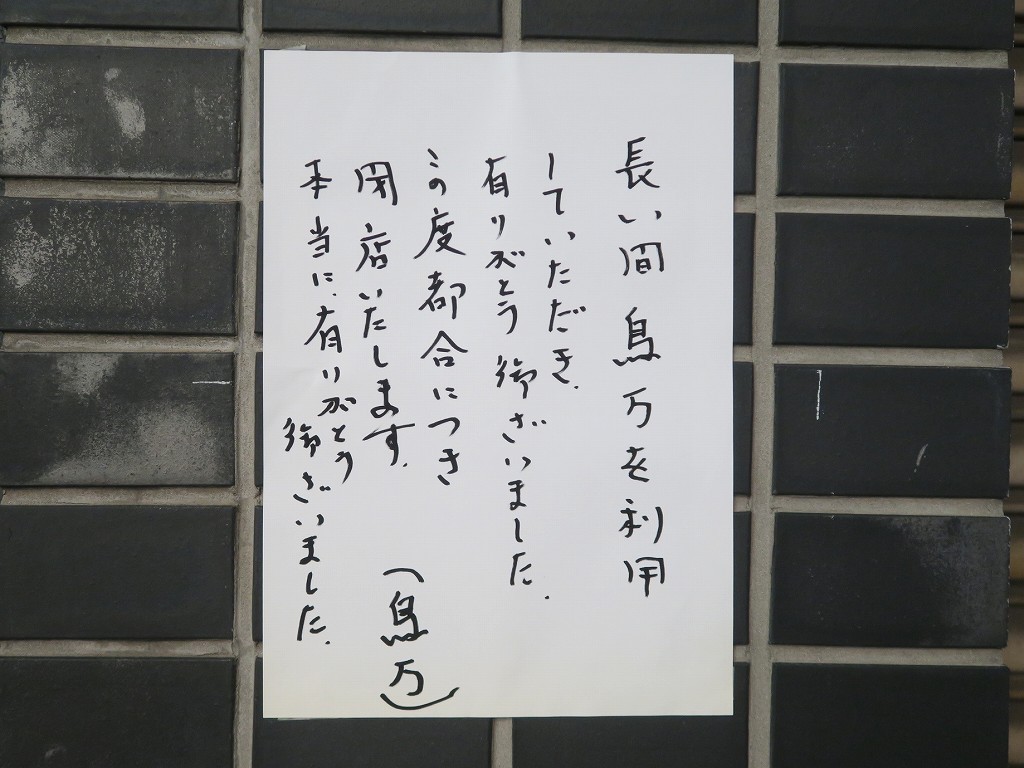 長い間鳥万を利用
していただき、
有りがとう御ざいました.
この度都合につき
閉店いたします.
本当に.有りがとう
御ざいました.
(鳥万)